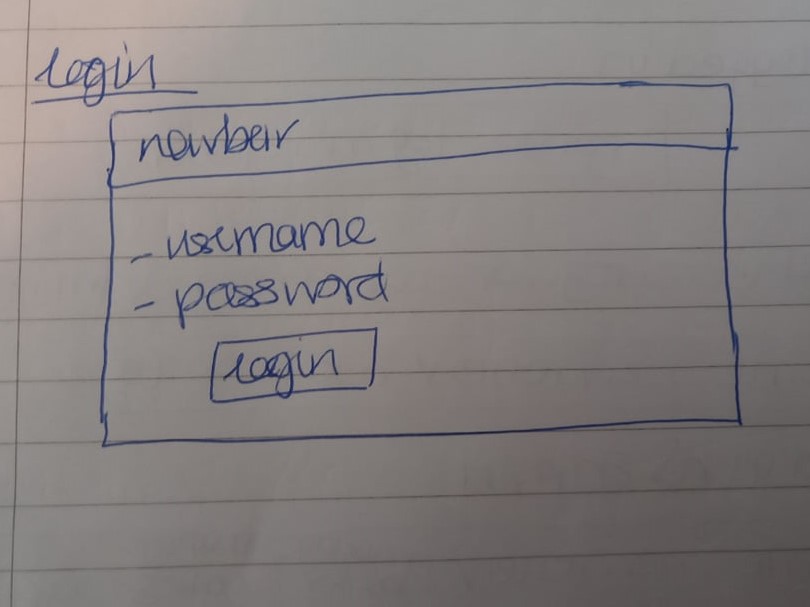 login
navbar
- username
- password
login